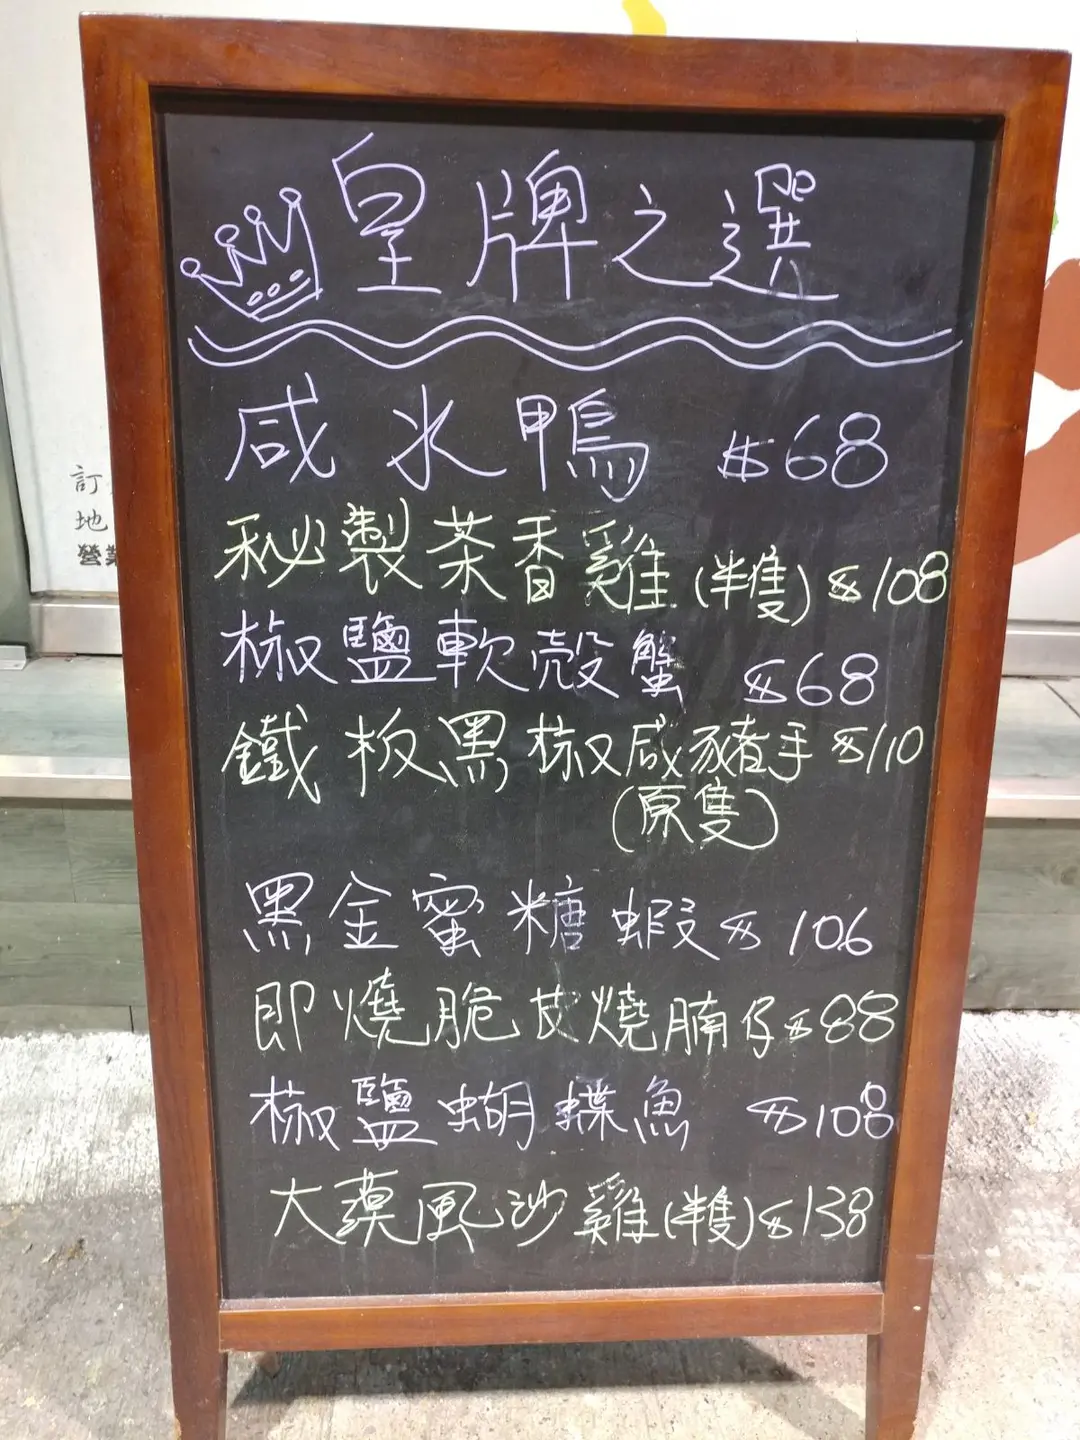 皇牌之選
咸水鴨 $68
秘製茶香雞(半隻) $108
椒鹽軟殼蟹 $68
鐵板黑椒咸豬手 $110
(原隻)
黑金蜜糖蝦 $106
即燒脆皮燒腩仔 $88
椒鹽蝴蝶魚 $108
大漠風沙雞(半隻) $138
訂
地
營業